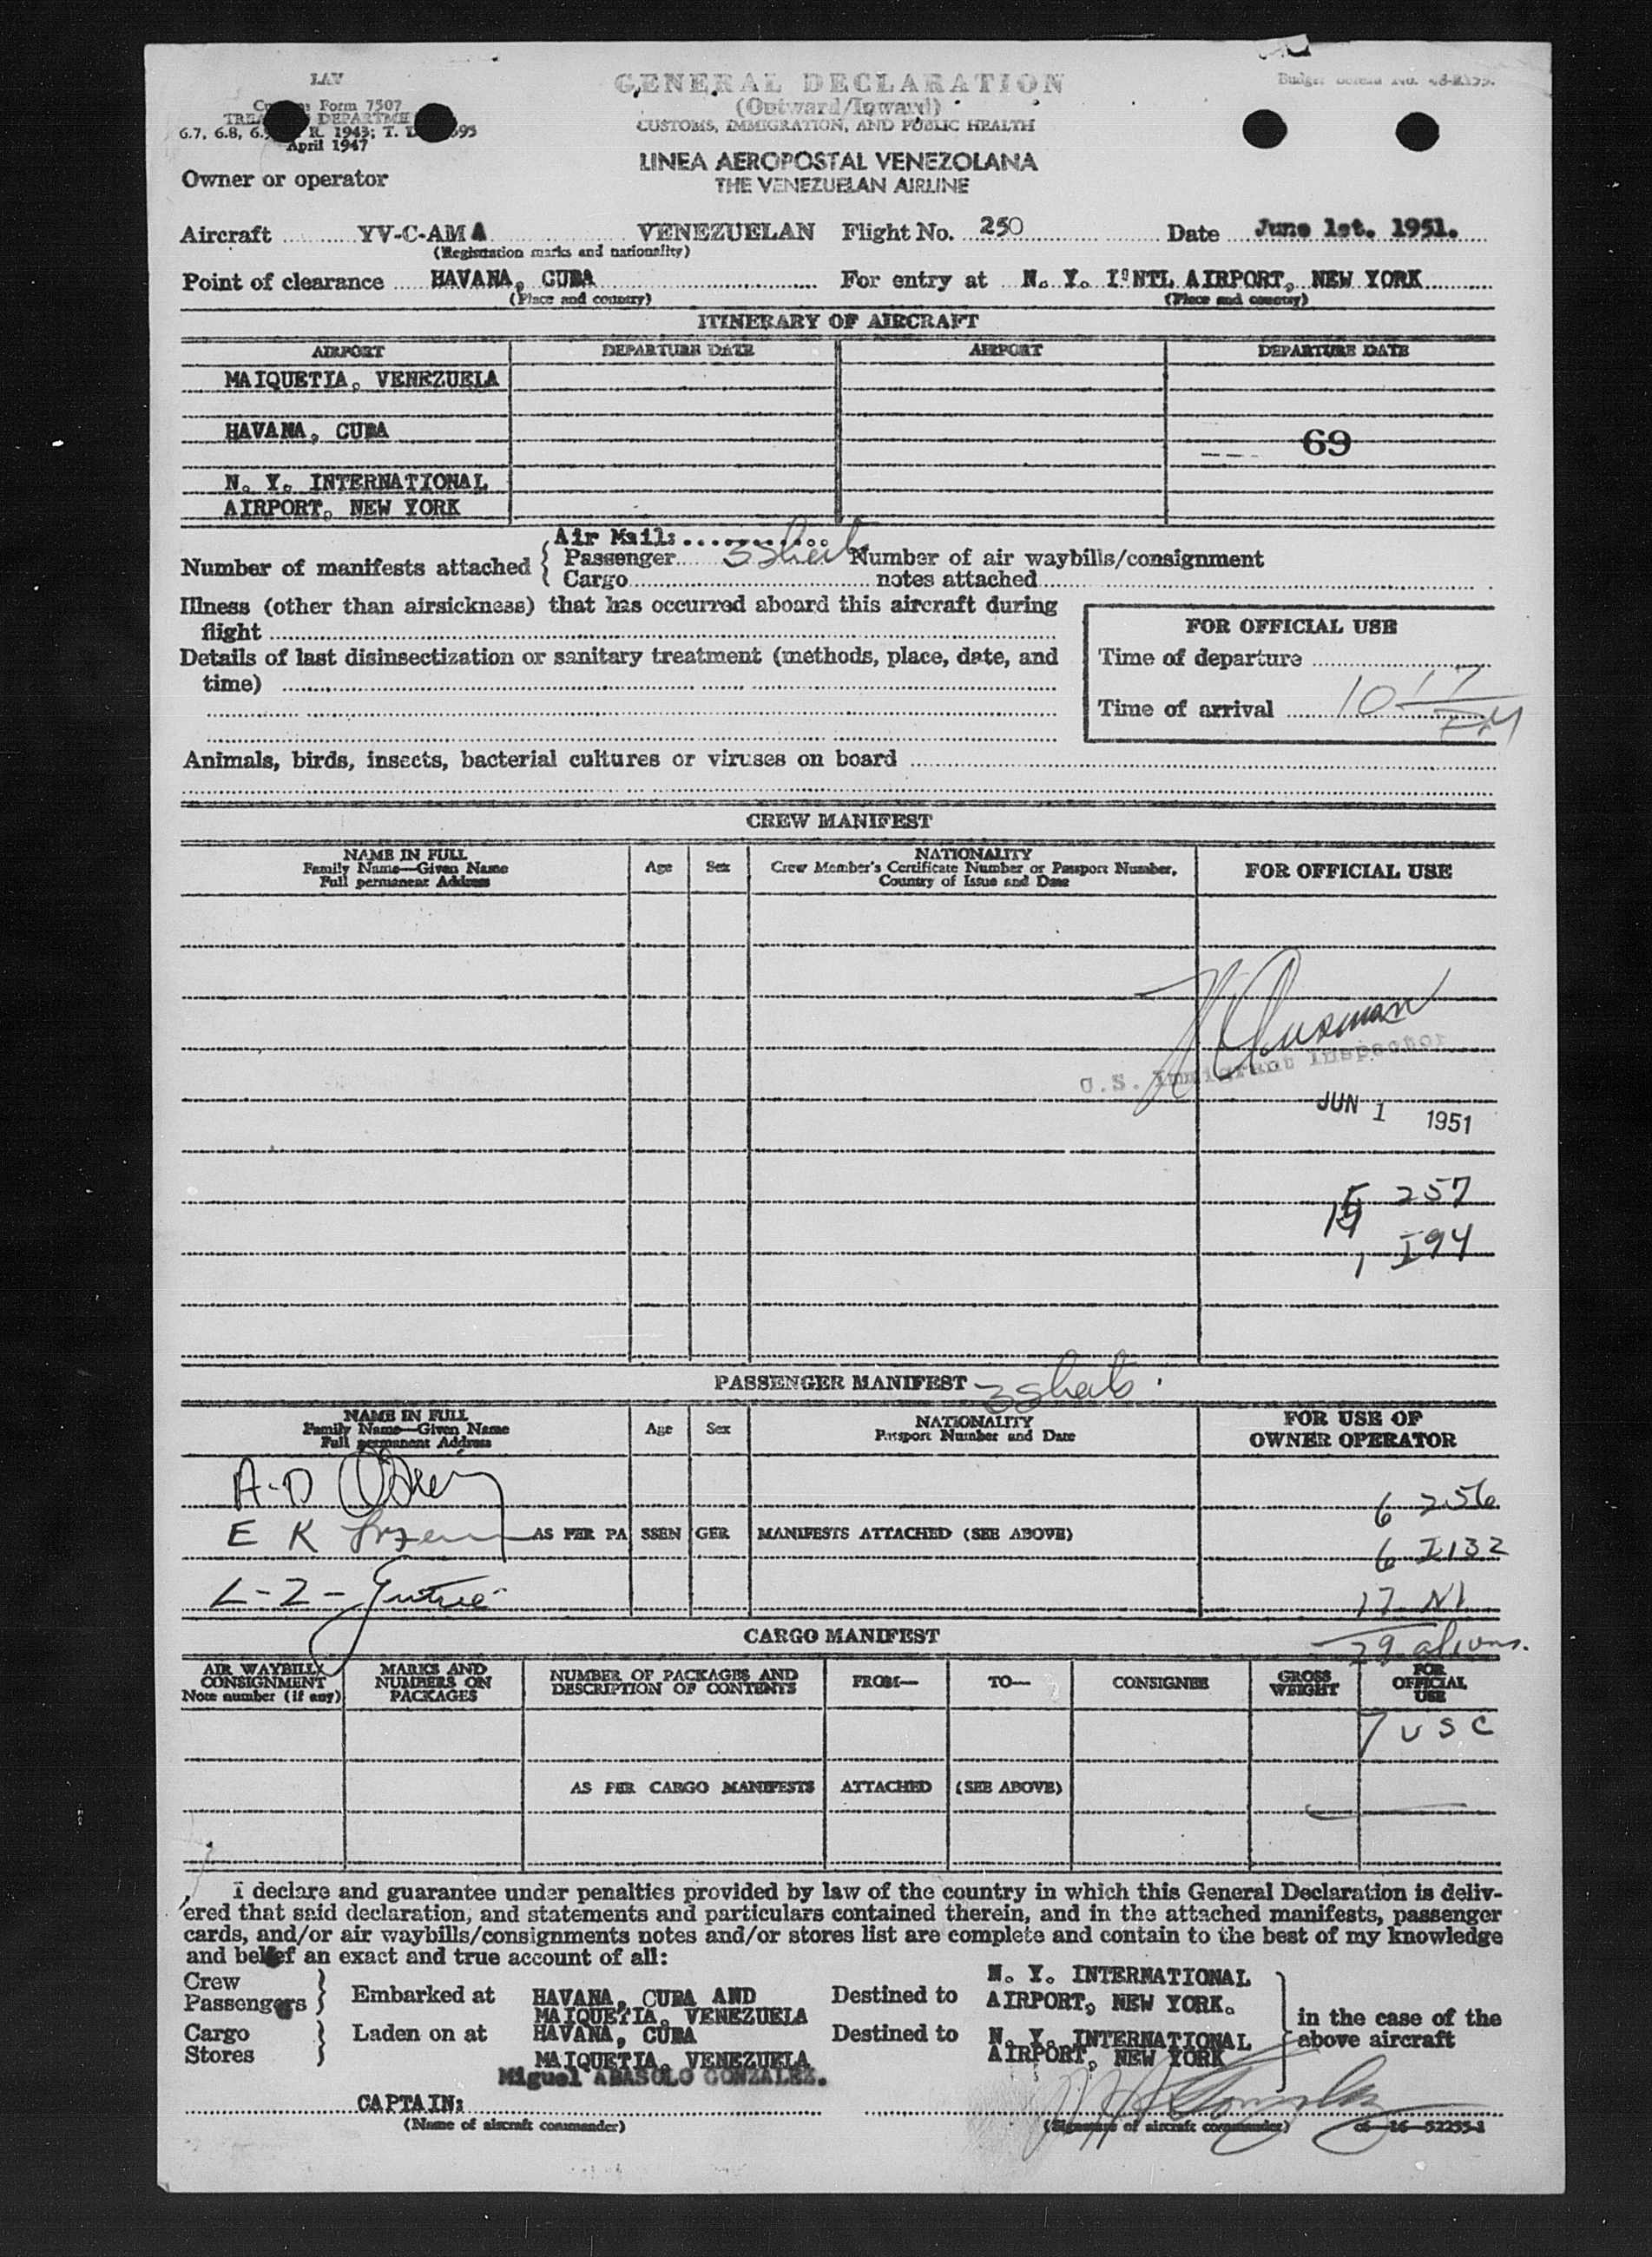 LAV
GENERAL DECLARATION
(Outward/Inward)
CUSTOMS, IMMIGRATION, AND PUBLIC HEALTH
Form 7507
6.7, 6.8, R. 1943; T.
April 1947
LINEA AEROPOSTAL VENEZOLANA
THE VENEZUELAN AIRLINE
Owner or operator
Aircraft YV-C-AMA VENEZUELAN Flight No. 250 Date June 1st. 1951.
(Registration marks and nationality)
Point of clearance HAVANA, CUBA For entry at N. Y. I'NTL AIRPORT, NEW YORK
(Place and country) (Place and country)
ITINERARY OF AIRCRAFT
AIRPORT DEPARTURE DATE AIRPORT DEPARTURE DATE
MAIQUETIA, VENEZUELA
HAVANA, CUBA
69
N. Y. INTERNATIONAL
AIRPORT, NEW YORK
Number of manifests attached
Air Mail:
Passenger 3 Number of air waybills/consignment
Cargo notes attached
Illness (other than airsickness) that has occurred aboard this aircraft during
flight
Details of last disinsectization or sanitary treatment (methods, place, date, and
time)
FOR OFFICIAL USE
Time of departure
Time of arrival 10 17
Animals, birds, insects, bacterial cultures or viruses on board
CREW MANIFEST
NAME IN FULL
Family Name—Given Name
Full permanent Address
Age Sex
NATIONALITY
Crew Member's Certificate Number or Passport Number,
Country of Issue and Date
FOR OFFICIAL USE
U.S. Immigrant Inspector
JUN 1 1951
257
1 I94
PASSENGER MANIFEST - 3 sheets
NAME IN FULL
Family Name—Given Name
Full permanent Address
Age Sex
NATIONALITY
Passport Number and Date
FOR USE OF
OWNER OPERATOR
A-D
6 256
E K AS PER PASSENGER MANIFESTS ATTACHED (SEE ABOVE)
6 I132
L-Z-
17 NI
29 aliens.
CARGO MANIFEST
AIR WAYBILL/
CONSIGNMENT
Note number (if any)
MARKS AND
NUMBERS ON
PACKAGES
NUMBER OF PACKAGES AND
DESCRIPTION OF CONTENTS
FROM— TO— CONSIGNEE
GROSS
WEIGHT
FOR
OFFICIAL
USE
7 USC
AS PER CARGO MANIFESTS ATTACHED (SEE ABOVE)
I declare and guarantee under penalties provided by law of the country in which this General Declaration is deliv-
ered that said declaration, and statements and particulars contained therein, and in the attached manifests, passenger
cards, and/or air waybills/consignments notes and/or stores list are complete and contain to the best of my knowledge
and belief an exact and true account of all:
Crew
Passengers
Embarked at HAVANA, CUBA AND
MAIQUETIA, VENEZUELA
Destined to N. Y. INTERNATIONAL
AIRPORT, NEW YORK.
Cargo
Stores
Laden on at HAVANA, CUBA
MAIQUETIA, VENEZUELA
Destined to N. Y. INTERNATIONAL
AIRPORT, NEW YORK
in the case of the
above aircraft
Miguel ABASOLO GONZALEZ.
CAPTAIN:
(Name of aircraft commander) (Signature of aircraft commander) 16—52255-1